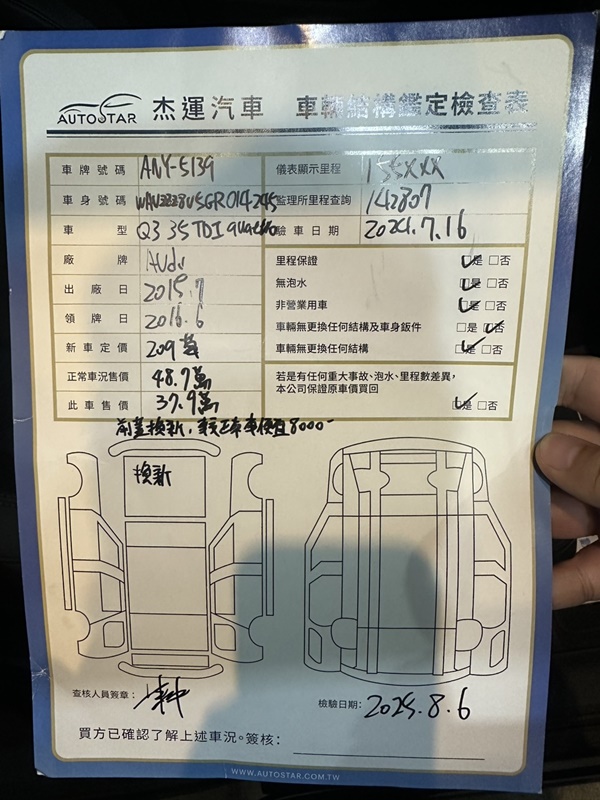 AUTOSTAR 杰運汽車 車輛結構鑑定檢查表
車牌號碼 ANY-5139 儀表顯示里程 155XXX
車身號碼 監理所里程查詢 142807
車型 Q3 35 TDI quattro 驗車日期 2024.7.16
廠牌 Audi
出廠日 2015.7
領牌日 2016.6
新車定價 209萬
正常車況售價 48.7萬
此車售價 37.9萬
里程保證 ☑是 □否
無泡水 ☑是 □否
非營業用車 ☑是 □否
車輛無更換任何結構及車身鈑件 □是 ☑否
車輛無更換任何結構 ☑是 □否
若是有任何重大事故、泡水、里程數差異，
本公司保證原車價買回 ☑是 □否
前蓋換新，
8000-
換新
查核人員簽章：
檢驗日期： 2025.8.6
買方已確認了解上述車況。簽核：
WWW.AUTOSTAR.COM.TW